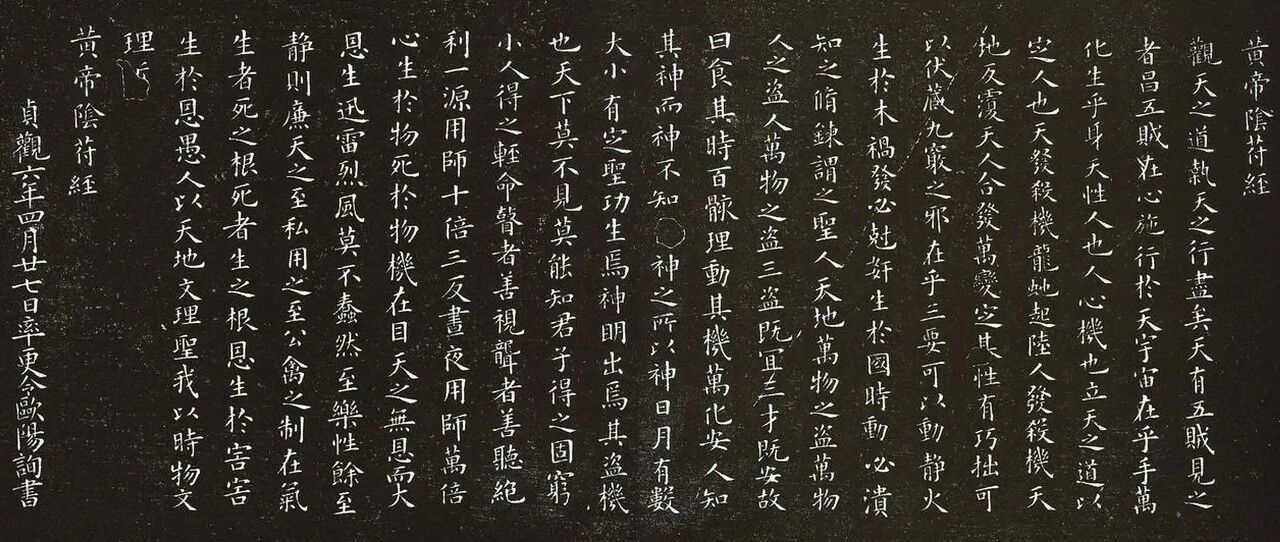 黃帝陰苻經
觀天之道執天之行盡矣天有五賊見之
者昌五賊在心施行於天宇宙在乎手萬
化生乎身天性人也人心機也立天之道以
定人也天發殺機龍虵起陸人發殺機天
地反覆天人合發萬變定基性有巧拙可
以伏藏九竅之邪在乎三要可以動静火
生於木禍發必尅奸生於國時動必潰
知之脩鍊謂之聖人天地萬物之盜萬物
人之盜人萬物之盜三盜既冝三才既安故
曰食其時百骸理動其機萬化安人知
其神而神不知神之所以神日月有數
大小有定聖功生焉神明出焉其盜機
也天下莫不見莫能知君子得之固窮
小人得之輕命瞽者善視聾者善聽絕
利一源用師十倍三反晝夜用師萬倍
心生於物死於物機在目天之無恩而大
恩生迅雷烈風莫不蠢然至樂性餘至
静則廉天之至私用之至公禽之制在氣
生者死之根死者生之根恩生於害害
生於恩愚人以天地文理聖我以時物文
理
黃帝陰苻經
貞觀六年四月廿七日率更令歐陽詢書